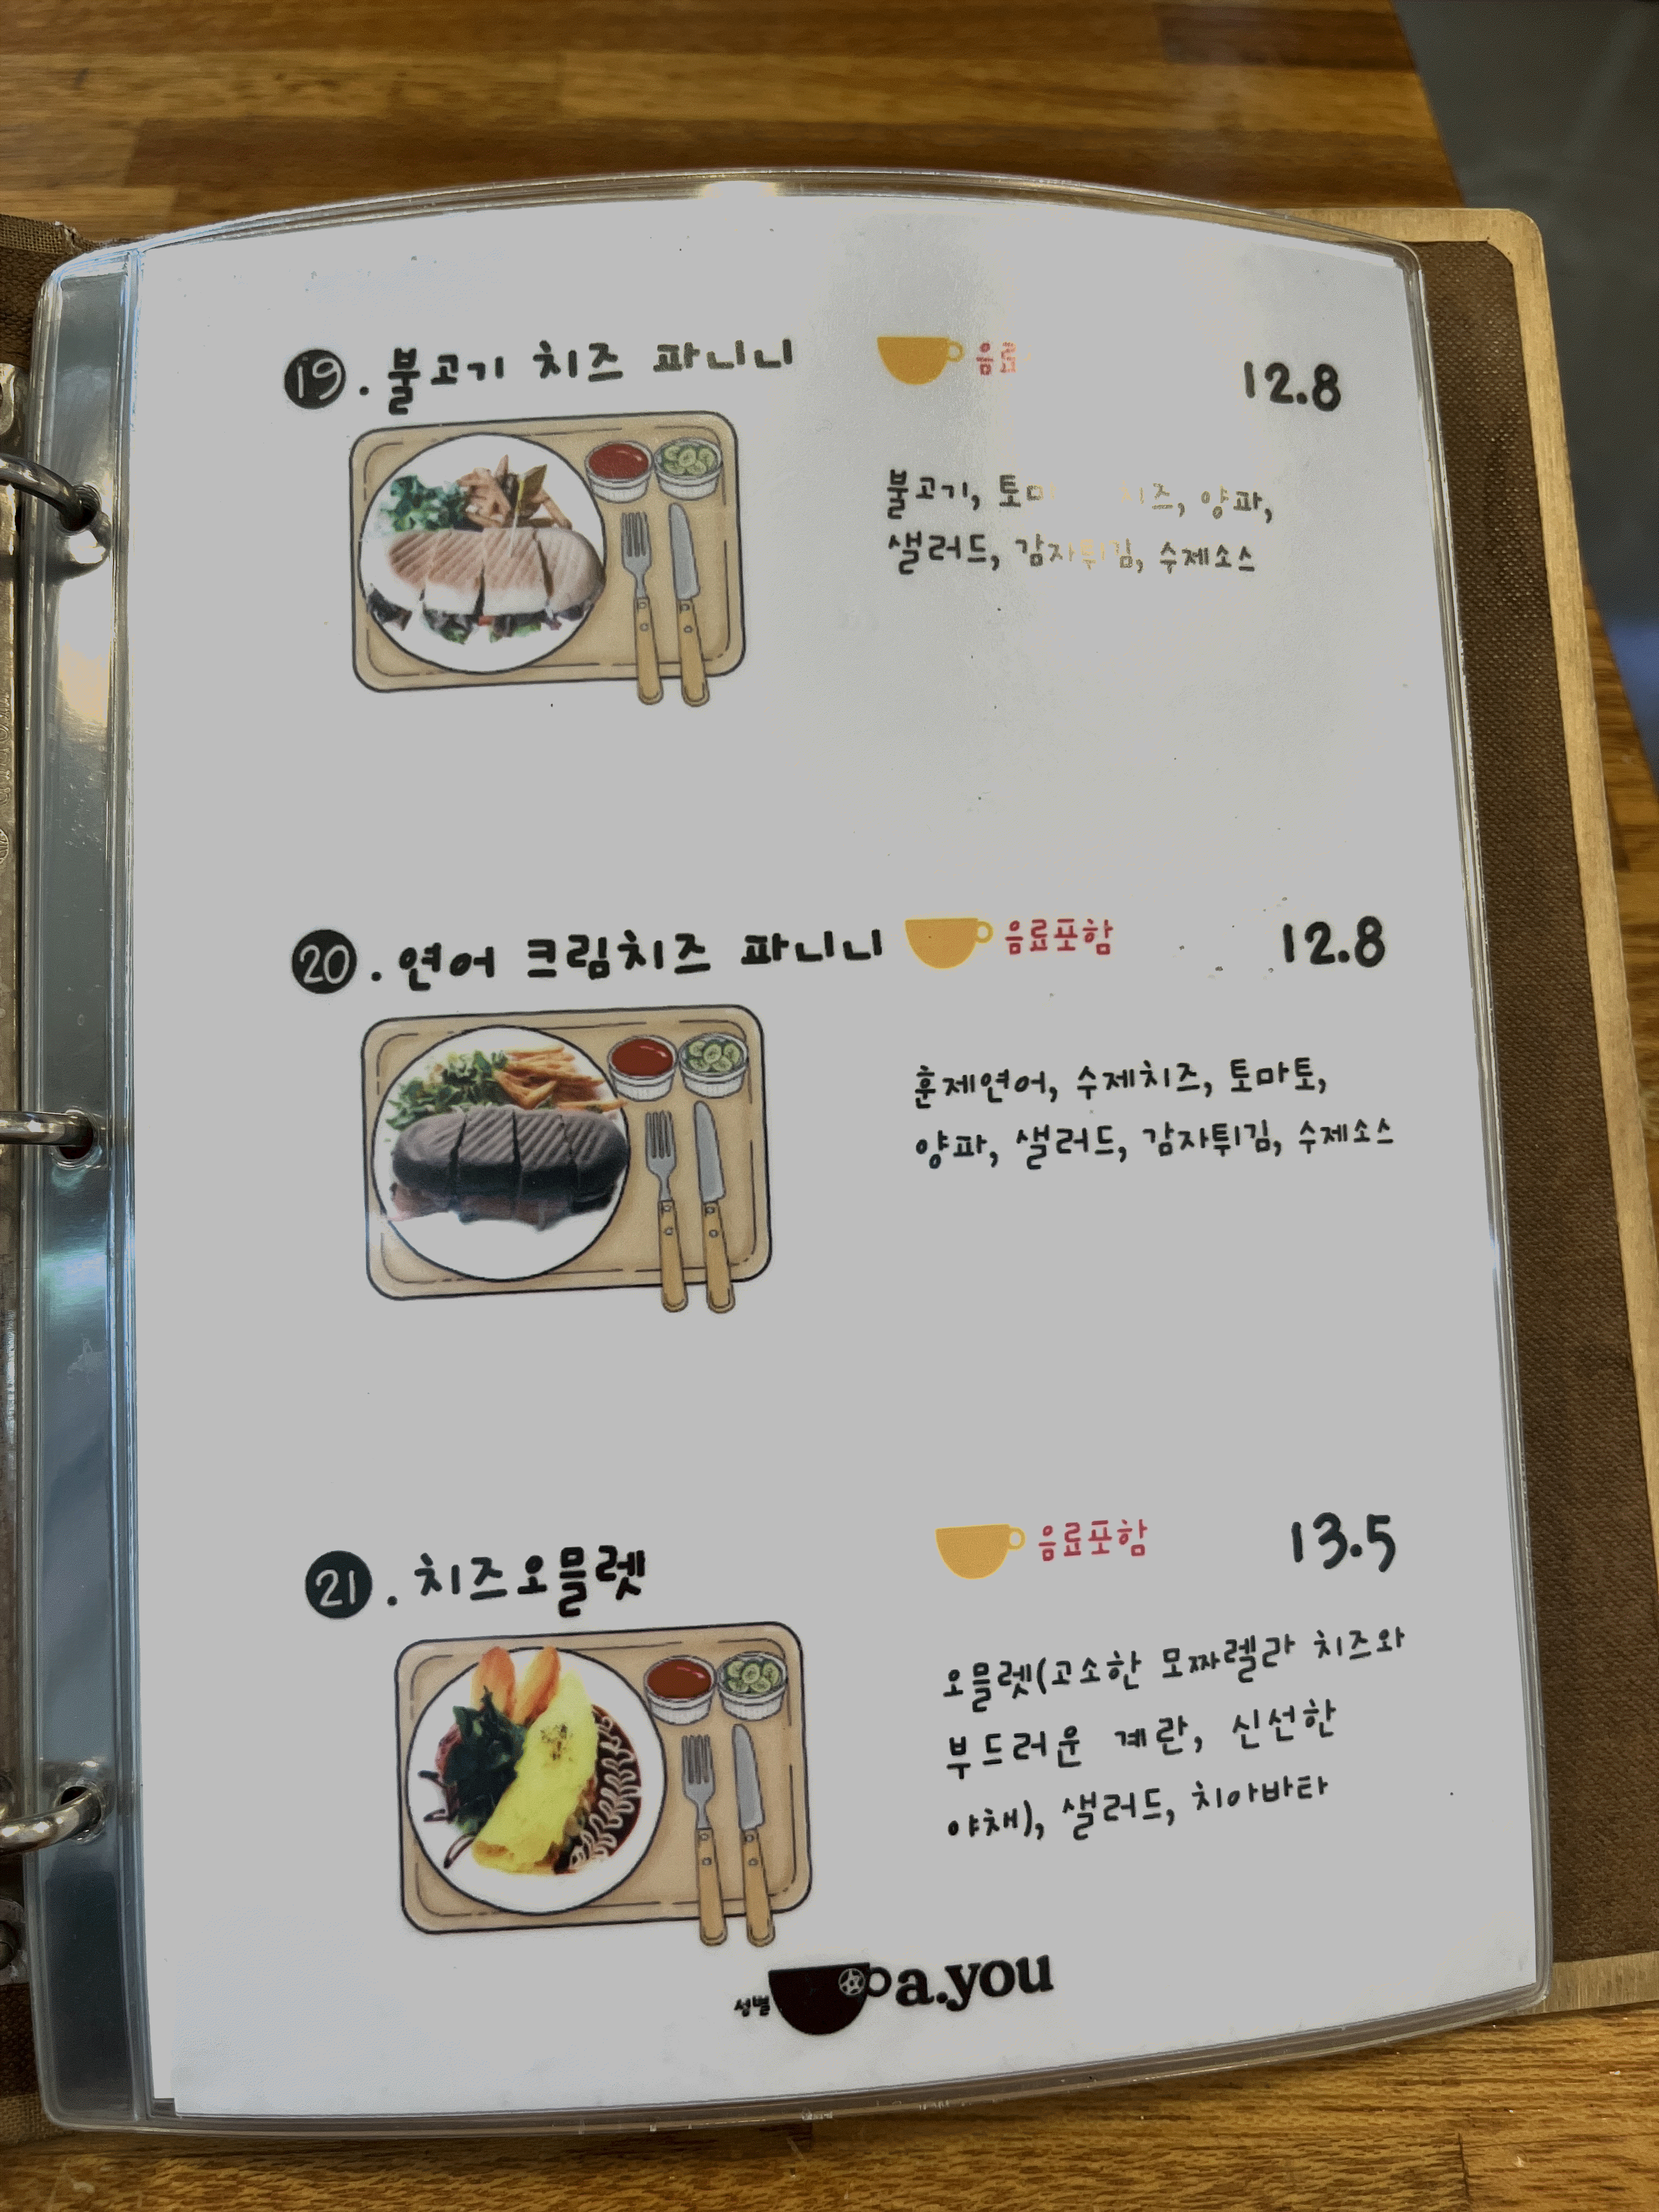 19. 불고기 치즈 파니니
12.8
불고기, 치즈, 양파,
샐러드, 감자튀김, 수제소스
20. 연어 크림치즈 파니니 음료포함 12.8
훈제연어, 수제치즈, 토마토,
양파, 샐러드, 감자튀김, 수제소스
21. 치즈오믈렛 음료포함 13.5
오믈렛(고소한 모짜렐라 치즈와
부드러운 계란, 신선한
야채), 샐러드, 치아바타
성별 a.you